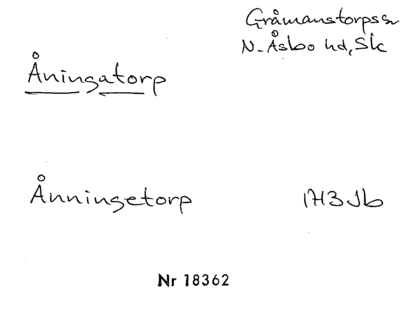 Gråmanstorps sn
N. Åsbo hd, Sk
Åningatorp
Ånningetorp 1713 Jb
Nr 18362